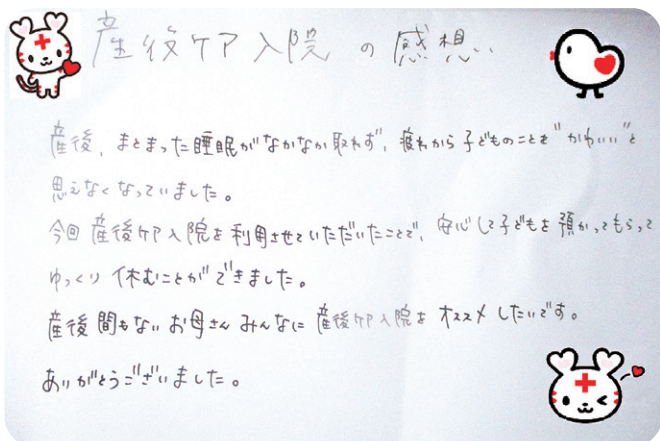 産後ケア入院の感想
産後、まとまった睡眠がなかなか取れず、疲れから子どものことを"かわいい"と
思えなくなっていました。
今回産後ケア入院を利用させていただいたことで、安心して子どもを預かってもらって
ゆっくり休むことができました。
産後間もないお母さんみんなに産後ケア入院をオススメしたいです。
ありがとうございました。